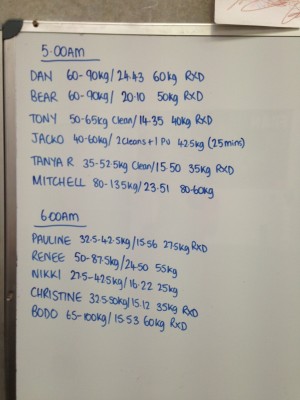 5.00AM
DAN 60-90kg/24.43 60kg RXD
BEAR 60-90kg/ 20.10 50kg RXD
TONY 50-65kg Clean/14.35 40kg RXD
JACKO 40-60kg/ 2Cleans+1 PU 42.5kg (25mins)
TANYA R 35-52.5kg Clean/15.50 35kg RXD
MITCHELL 80-135kg/23.51 80-60kg
6.00AM
PAULINE 32.5-42.5kg/15.56 27.5kg RXD
RENEE 50-87.5kg/24.50 55kg
NIKKI 27.5-42.5kg/16.22 25kg
CHRISTINE 32.5-50kg/15.12 35kg RXD
BODO 65-100kg/15.53 60kg RXD